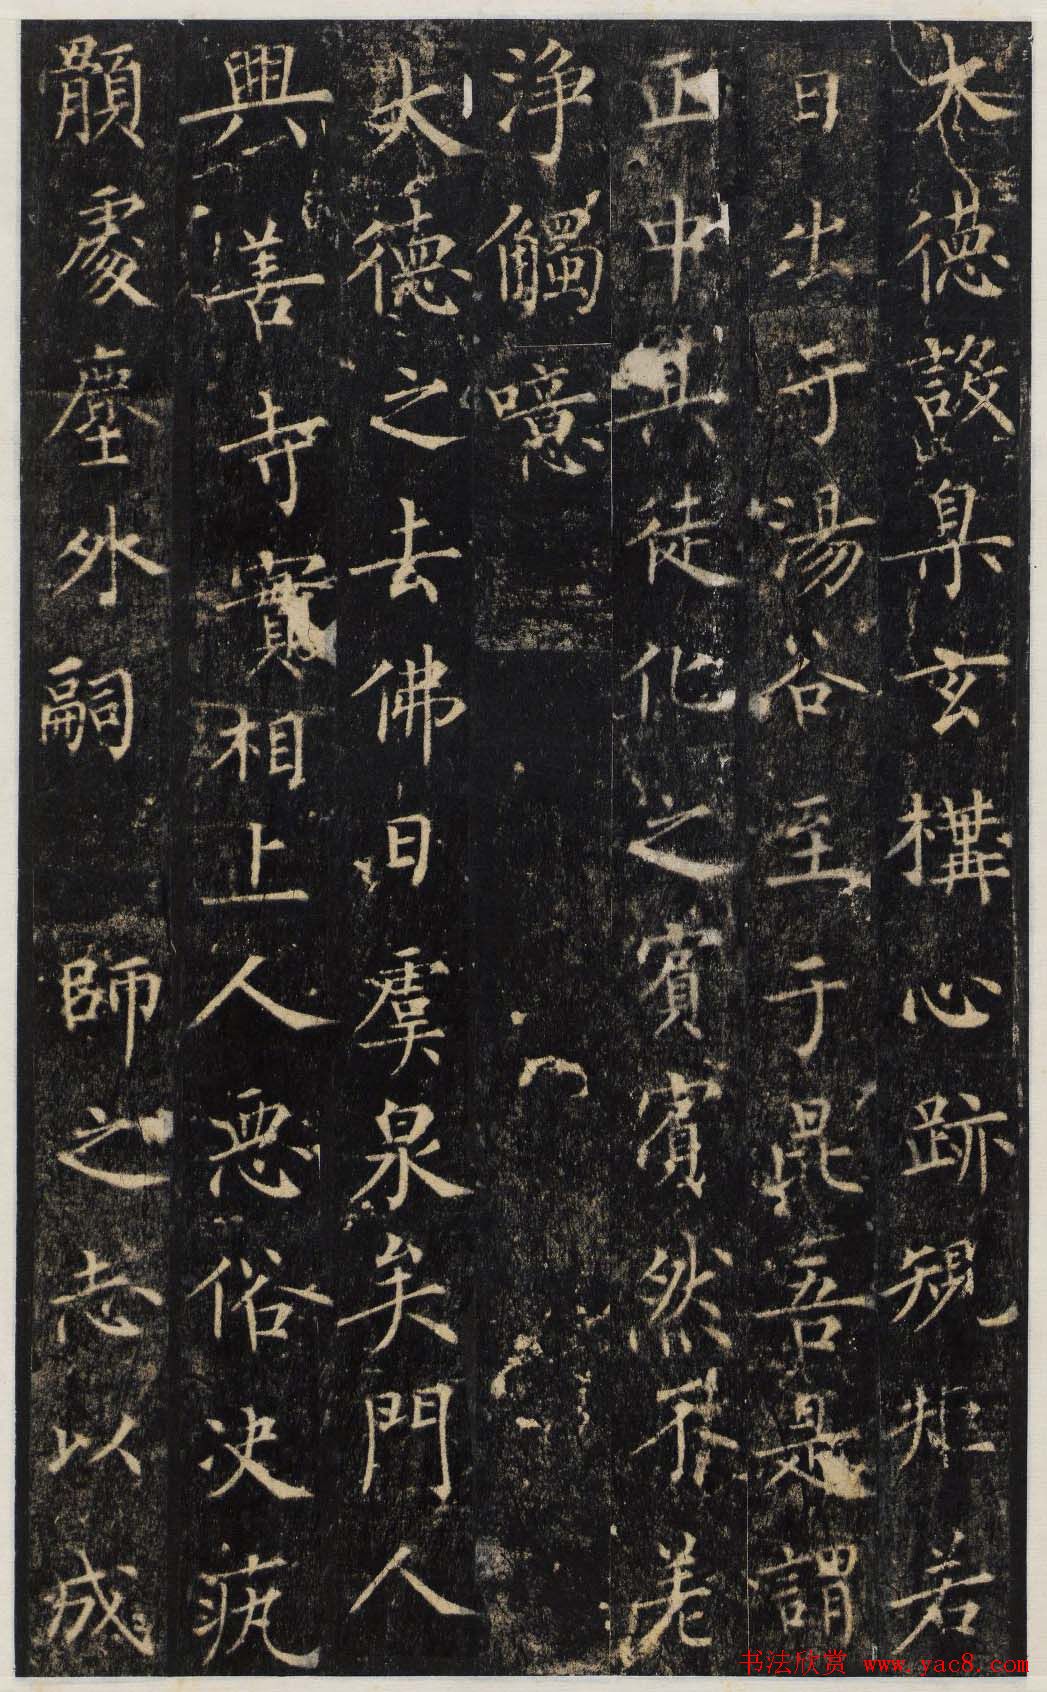 大德設臬玄構心跡規矩若
日出于湯谷至于昆吾是謂
正中其徒化之賓賓然不差
淨觸噫
大德之去佛日虞泉矣門人
興善寺實相上人惡俗決疣
顝處塵外嗣師之志以成
书法欣赏 www.yac8.com